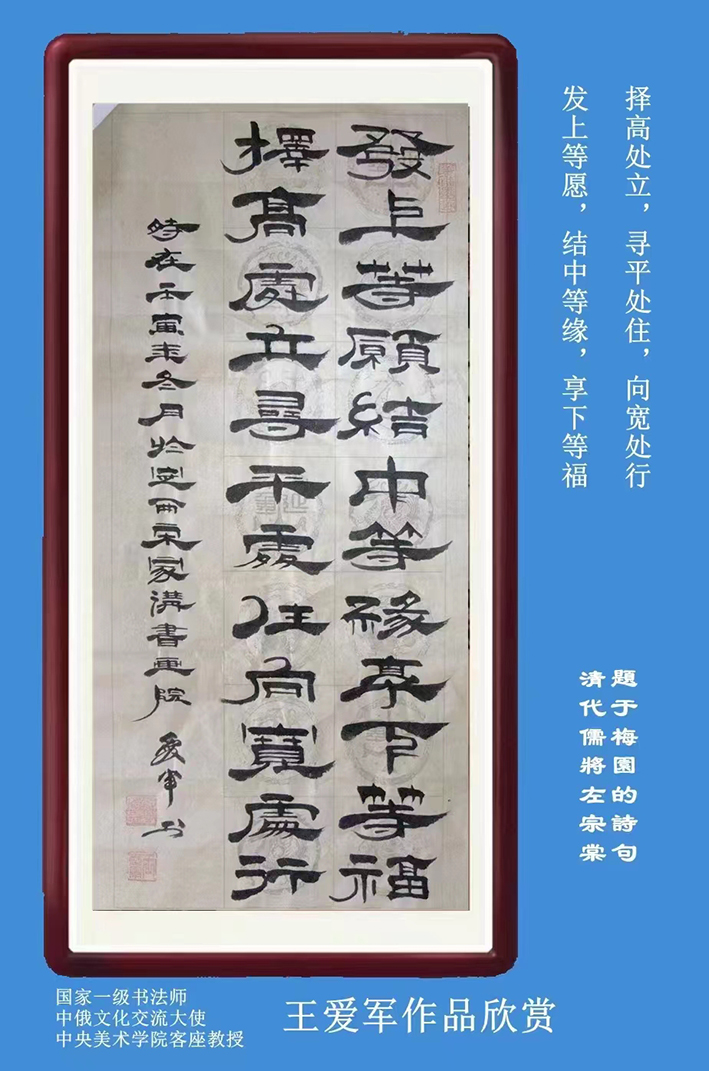 發上等願結中等緣享下等福
擇高處立尋平處住向寬處行
時在壬寅年冬月於宋家溝書畫院 愛軍书
发上等愿，结中等缘，享下等福
择高处立，寻平处住，向宽处行
清代儒將左宗棠
題于梅園的詩句
国家一级书法师
中俄文化交流大使
中央美术学院客座教授
王爱军作品欣赏